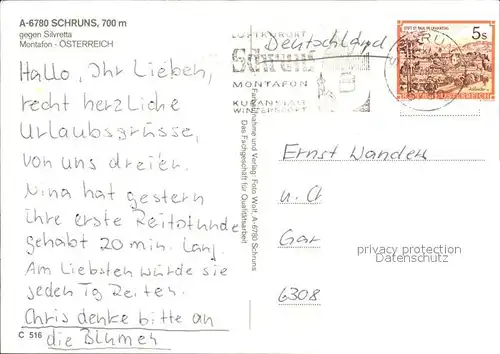 A-6780 SCHRUNS, 700 m
gegen Silvretta
Montafon - ÖSTERREICH
Hallo, Ihr Lieben,
recht herzliche
Urlaubsgrüsse,
von uns dreien.
Nina hat gestern
ihre erste Reitstunde
gehabt 20 min. Lang.
Am Liebsten würde sie
jeden Tg Reiten.
Chris denke bitte an
die Blumen
C 516
Farbaufnahme und Verlag: Foto Wolf, A-6780 Schruns
Das Fachgeschäft für Qualitätsarbeit
LUFTKURORT
Schruns
MONTAFON
KURANSTALT
WINTERSPORT
Deutschland
5s
STIFT ST. PAUL IM LAVANTTAL
REPUBLIK ÖSTERREICH
Ernst Wanders
u. Ch
Gar
6308
persönlicher
Datenschutz